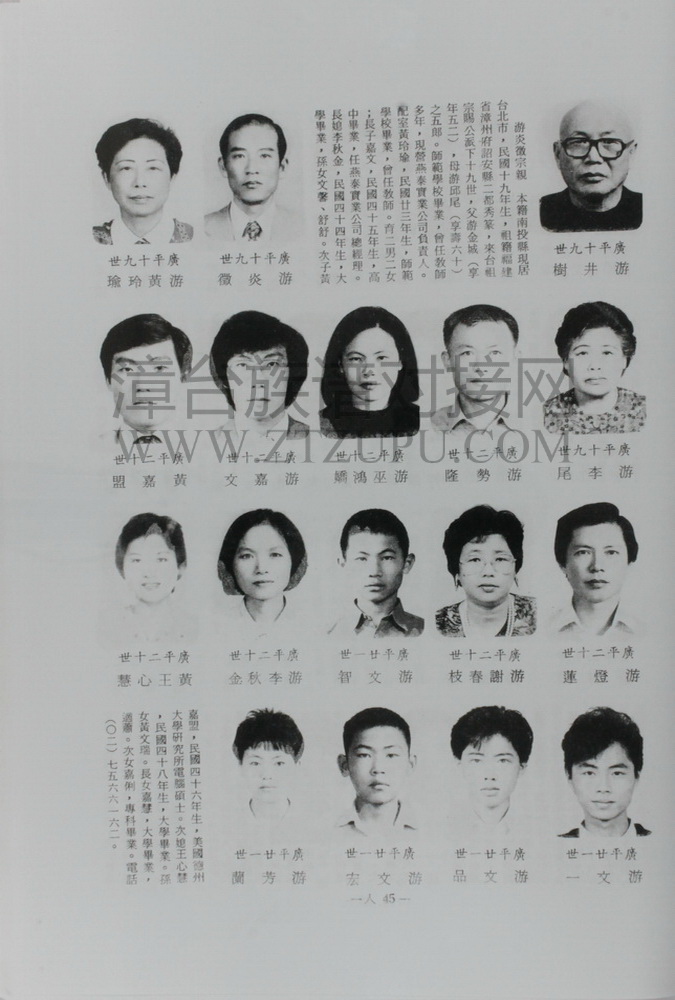 游炎徵宗親　本籍南投縣現居
台北市，民國十九年生，祖籍福建
省漳州府詔安縣二都秀篆，來台祖
宗賜公派下十九世，父游金城（享
年五二），母游邱尾（享壽六十）
之五郎。師範學校畢業，曾任教師
多年，現營燕泰實業公司負責人。
配室黃玲瑜，民國廿三年生，師範
學校畢業，曾任教師。育二男二女
；長子嘉文，民國四十五年生，高
中畢業，任燕泰實業公司總經理。
長媳李秋金，民國四十四年生，大
學畢業，孫女文馨、舒舒。次子黃
世九十平廣
樹井游
世九十平廣
徵炎游
世九十平廣
瑜玲黃游
世九十平廣
尾李游
世十二平廣
隆勢游
世十二平廣
嬌鴻巫游
世十二平廣
文嘉游
世十二平廣
盟嘉黃
漳台族谱对接网
WWW.ZTZUPU.COM
世十二平廣
蓮燈游
世十二平廣
枝春謝游
世一廿平廣
智文游
世十二平廣
金秋李游
世十二平廣
慧心王黃
世一廿平廣
一文游
世一廿平廣
品文游
世一廿平廣
宏文游
世一廿平廣
蘭芳游
嘉盟，民國四十六年生，美國德州
大學研究所電腦碩士。次媳王心慧
，民國四十八年生，大學畢業。孫
女黃文瑞。長女嘉慧，大學畢業，
適蕭。次女嘉俐，專科畢業。電話
（〇二）七五六六一六二。
一人 45 一